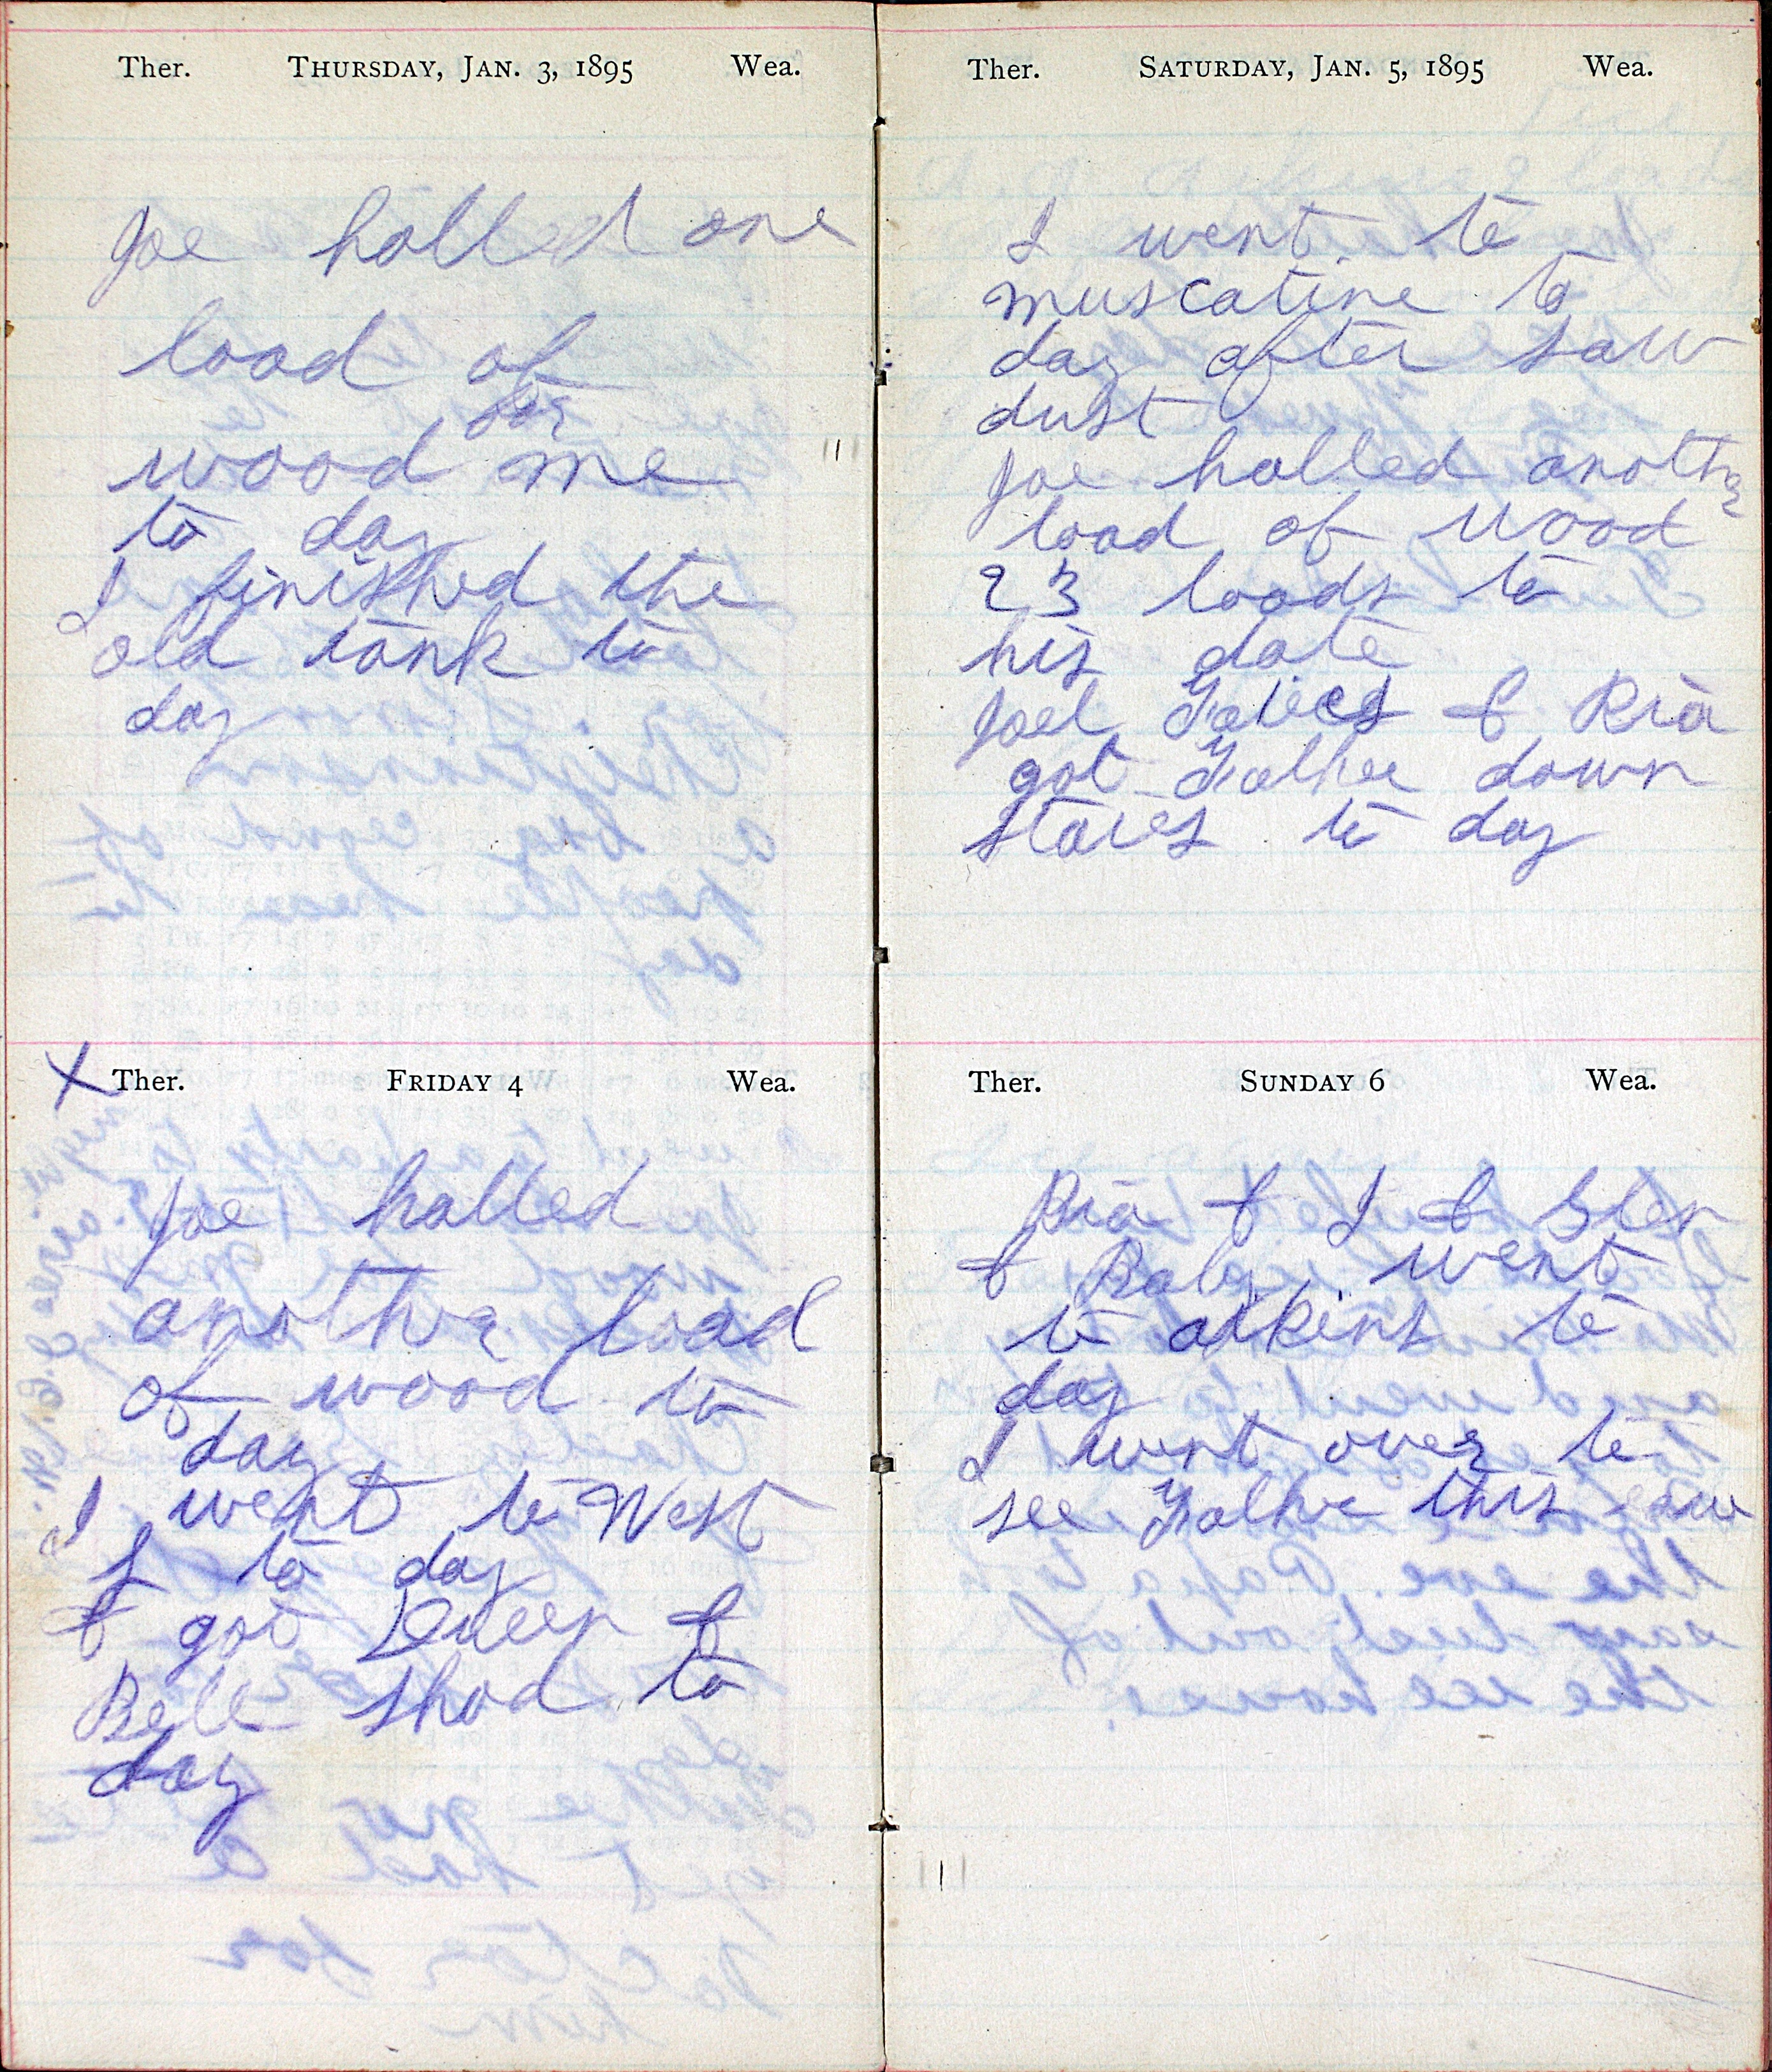 Ther. THURSDAY, JAN. 3, 1895 Wea.
Joe holled one
load of
for
wood me
to day
I finished the
old tank to
day
Ther. FRIDAY 4 Wea.
Joe halled
another load
of wood to
day
I went to West
L to day
& got Queen &
Bell shod to
day
Ther. SATURDAY, JAN. 5, 1895 Wea.
I went to
muscatine to
day after saw
dust
Joe halled another
load of wood
23 loads to
his date
Joel & Ria
got Father down
stares to day
Ther. SUNDAY 6 Wea.
Ria & I & Glen
& Baby went
to adkins to
day
I went over to
see Father this eave